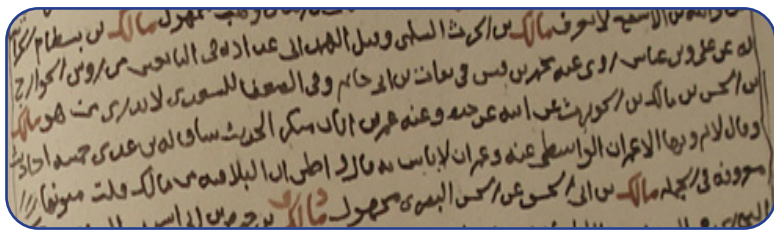 بن الاسقع لا يعرف مالك بن الحرث السلمي وقيل الهمداني عداده في التابعين من روس الخوارج
له عن علي وبن عباس روى عنه محمد بن قيس في ثقات بن ابي حاتم وفي الضعفا للسعدي لا يدرى من هو مالك
بن الحسن بن مالك بن الحويرث عن ابيه عن جده وعنه عمر بن ابان منكر الحديث ساق له بن عدي خمسة احاديث
وقال لا يرويها الا عمران الواسطي عنه وعمران لا باس به قال واظن ان البلا فيه من مالك قلت متونها
معروفة في الجملة مالك بن ابي الحسن عن الحسن البصري مجهول مالك بن